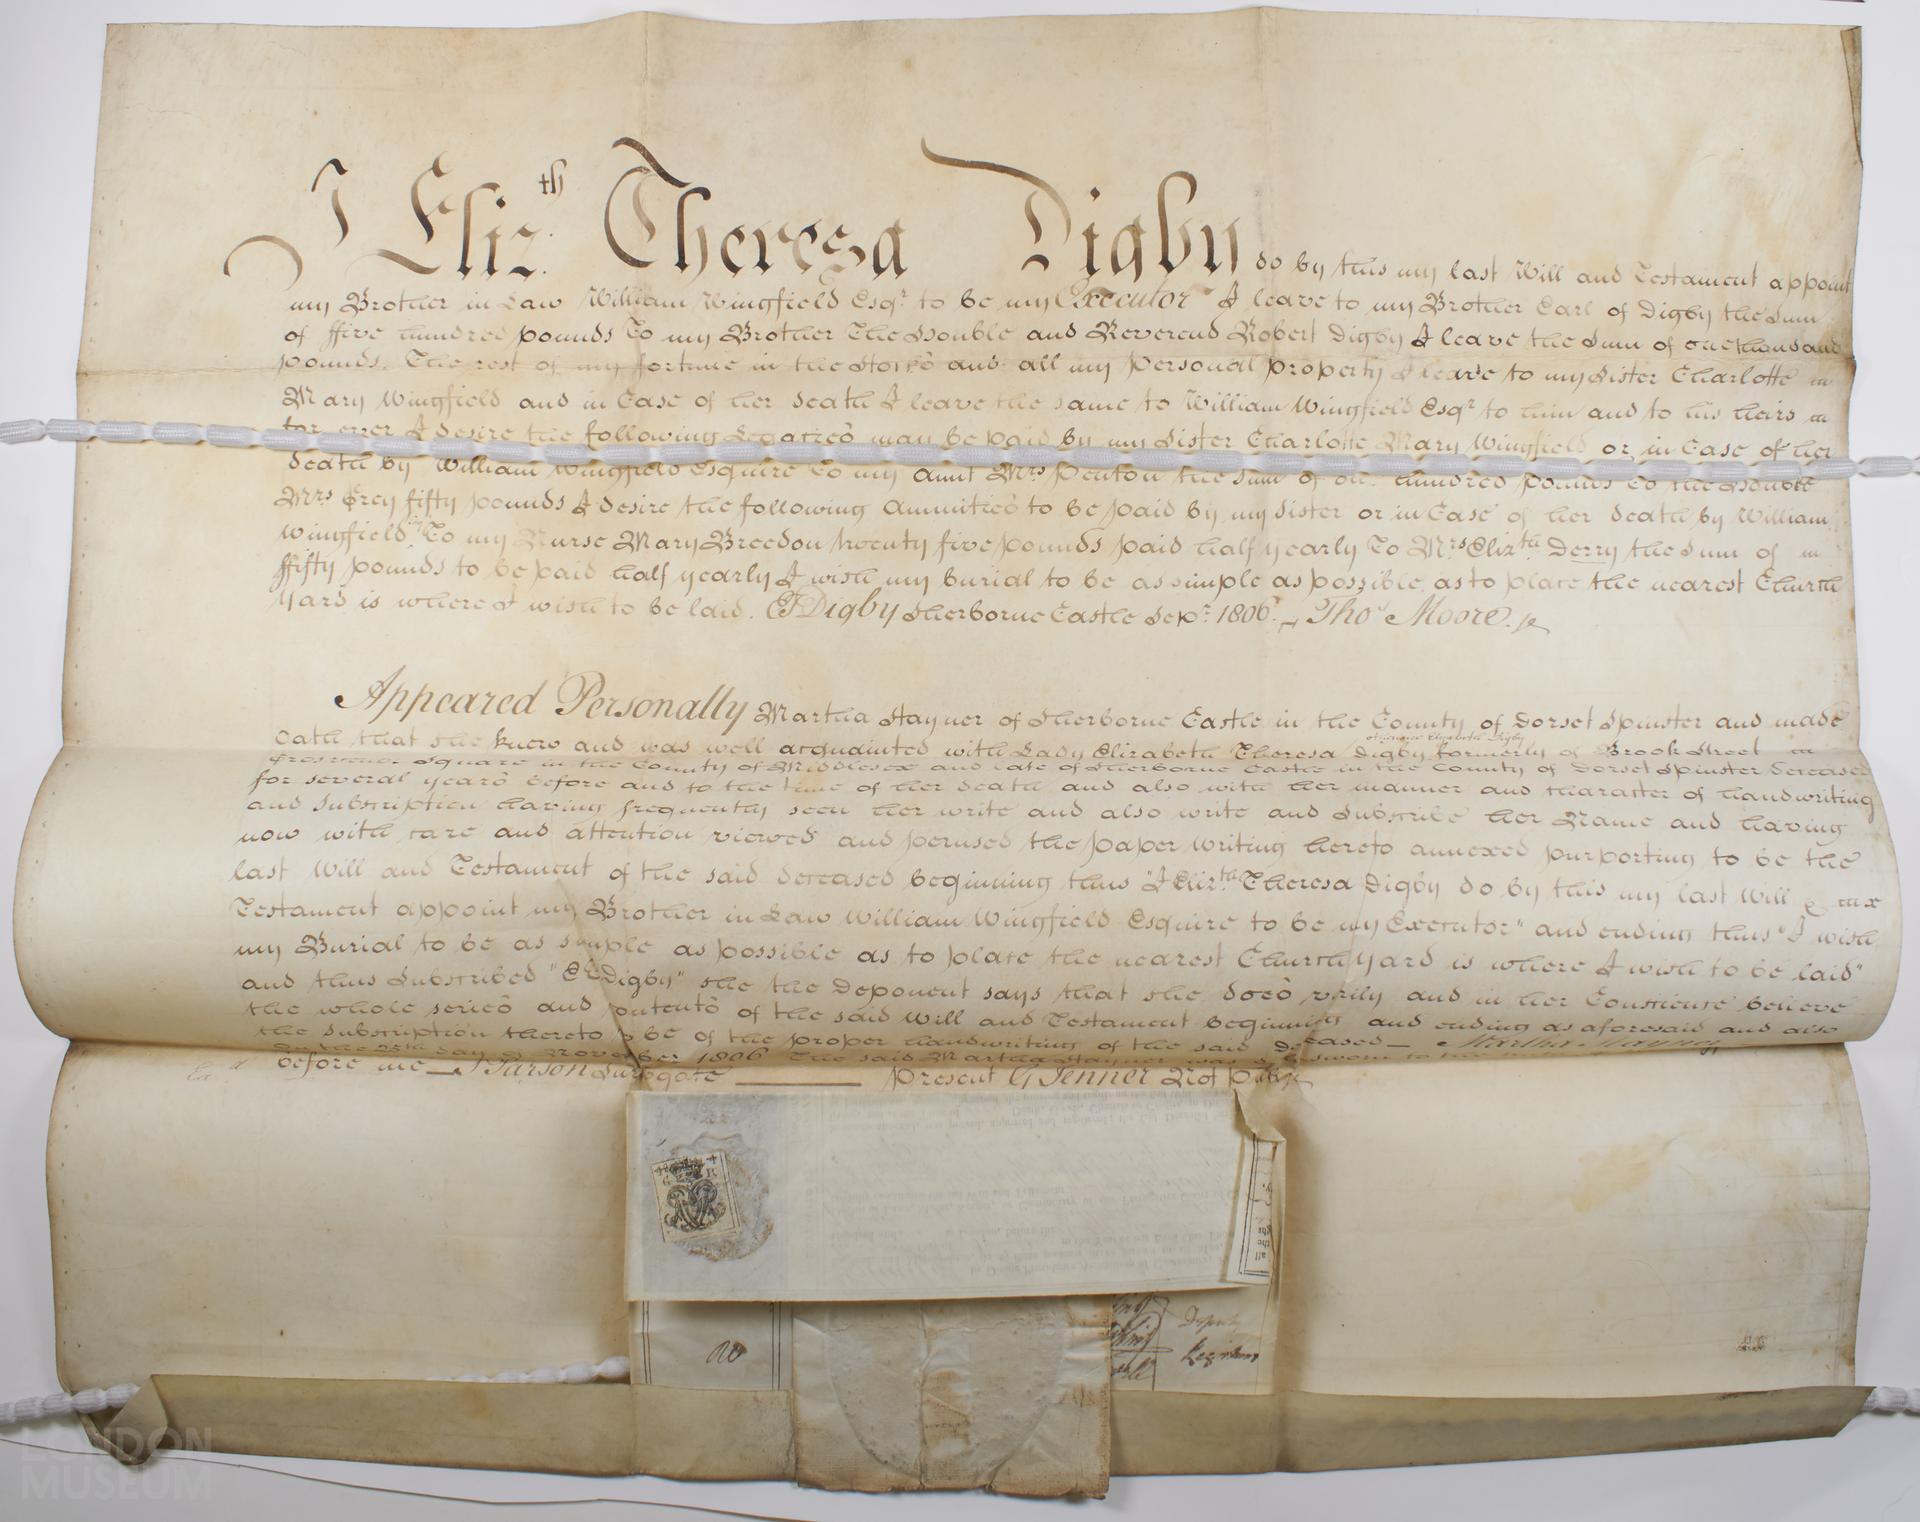 I Eliz:th Theresa Digby do by this my last Will and Testament appoint
my Brother in Law William Wingfield Esqr to be my Executor I leave to my Brother Earl of Digby the Sum
of ffive hundred pounds To my Brother The Honble and Reverend Robert Digby I leave the Sum of one thousand
pounds. The rest of my fortune in the Stocks and all my personal property I leave to my Sister Charlotte
Mary Wingfield and in Case of her death I leave the same to William Wingfield Esqr to him and to his heirs
for ever I desire the following Legacies may be paid by my Sister Charlotte Mary Wingfield or in Case of her
death by William Wingfield Esquire To my Aunt Mrs Penton the Sum of one hundred pounds To the Honble
Mrs Grey fifty pounds I desire the following Annuities to be paid by my Sister or in Case of her death by William
Wingfield To my Nurse Mary Breedon twenty five pounds paid half yearly To Mrs Elizth Derry the Sum of
ffifty pounds to be paid half yearly I wish my burial to be as simple as possible as to place the nearest Church
Yard is where I wish to be laid. ETDigby Sherborne Castle Sepr 1806. Thos Moore.
Appeared Personally Martha Hayner of Sherborne Castle in the County of Dorset Spinster and made
Oath that she knew and was well acquainted with Lady Elizabeth Theresa Digby formerly of Brook Street
Grosvenor Square in the County of Middlesex and late of Sherborne Castle in the County of Dorset Spinster deceased
for several years before and to the time of her death and also with her manner and character of handwriting
and Subscription having frequently seen her write and also write and Subscribe her Name and having
now with care and attention viewed and perused the paper Writing hereto annexed purporting to be the
last Will and Testament of the said deceased beginning thus "I Eliz:th Theresa Digby do by this my last Will &
Testament appoint my Brother in Law William Wingfield Esquire to be my Executor" and ending thus "I wish
my Burial to be as simple as possible as to place the nearest Church Yard is where I wish to be laid"
and thus Subscribed "ETDigby" she the Deponent says that she does verily and in her Conscience believe
the whole series and contents of the said Will and Testament beginning and ending as aforesaid and also
the Subscription thereto to be of the proper handwriting of the said deceased — Martha Hayner
On the 25th day of November 1806 the said Martha Hayner was sworn to the
before me Surrogate present G Jenner Not Pub
Deputy
Registers
LONDON
MUSEUM